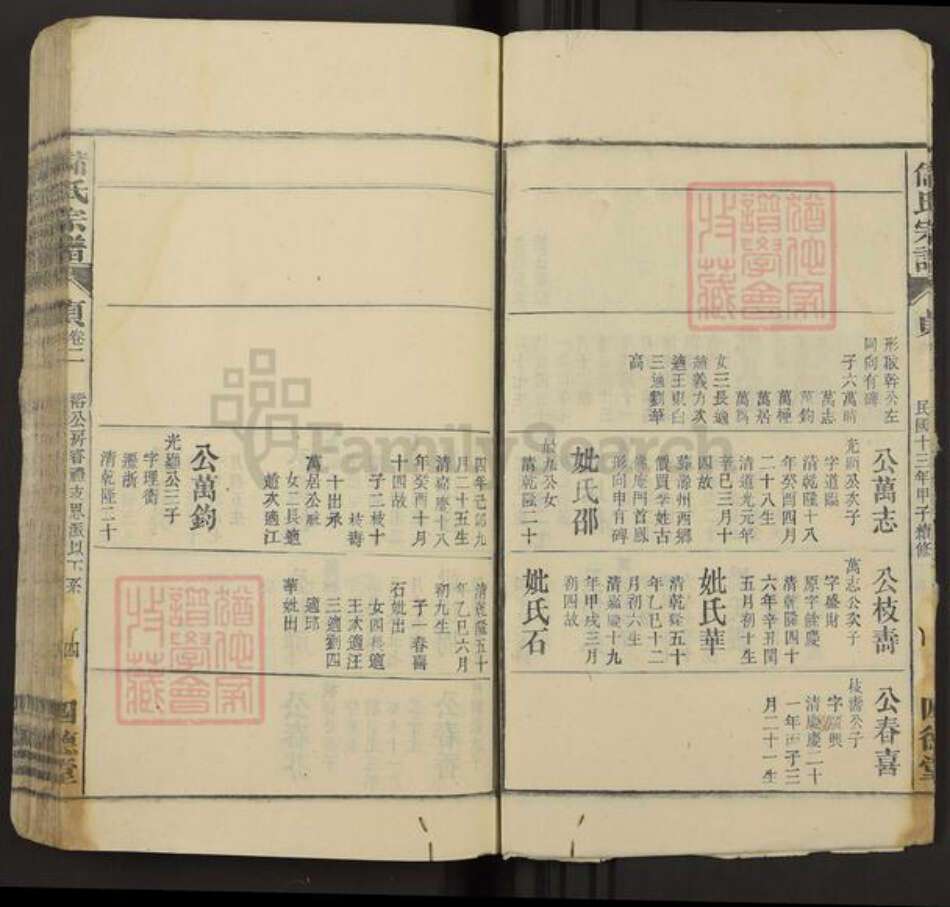 形取幹公左
同向有碑
子六萬時
萬志
萬鈞
萬極
萬居
萬為
女三長適
趙義方次
適王東白
三適劉華
高
公萬志
光顯公次子
字道臨
清乾隆十八
年癸酉四月
二十八生
清道光元年
辛巳三月十
四故
葬滁州西鄉
價買李姓古
佛庵門首鳳
形向申有碑
妣氏邵
最九公女
清乾隆二十
公枝壽
萬志公次子
字盛財
原字餘慶
清乾隆四十
六年辛丑閏
五月初十生
妣氏華
清乾隆五十
年乙巳十二
月初六生
清嘉慶十九
年甲戌三月
初四故
妣氏石
公春喜
枝壽公子
字興
清慶慶二十
一年丙子三
月二十一生
儲氏宗譜
民國十三年甲子續修
四德堂
四年己卯九
月二十五生
清嘉慶十八
年癸酉十月
十四故
子二枝十
枝壽
十出承
萬居公祧
女二長適
趙次適江
公萬鈞
光顯公三子
字理衡
遷浙
清乾隆二十
清乾隆五十
年乙巳六月
初九生
子一春喜
石妣出
女四長適
王次適汪
三適劉四
適邱
華妣出
儲氏宗譜
貞
卷二
裕公房睿禮支思派以下系
四
四德堂
猶他家
譜學會
收藏
猶他家
譜學會
收藏
FamilySearch